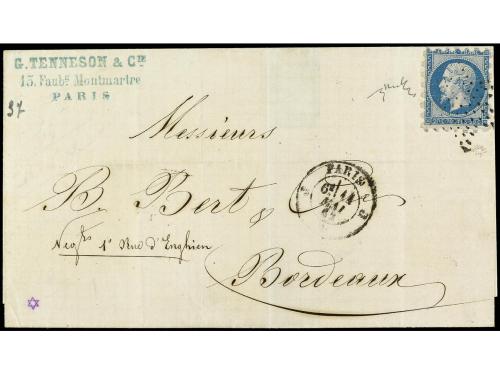 G. TENNESON & CIE
15, Faubg Montmartre
PARIS
37
Messieurs
B. Bert &
Negts 1 Rue d'Enghien
Bordeaux
PARIS
MAI